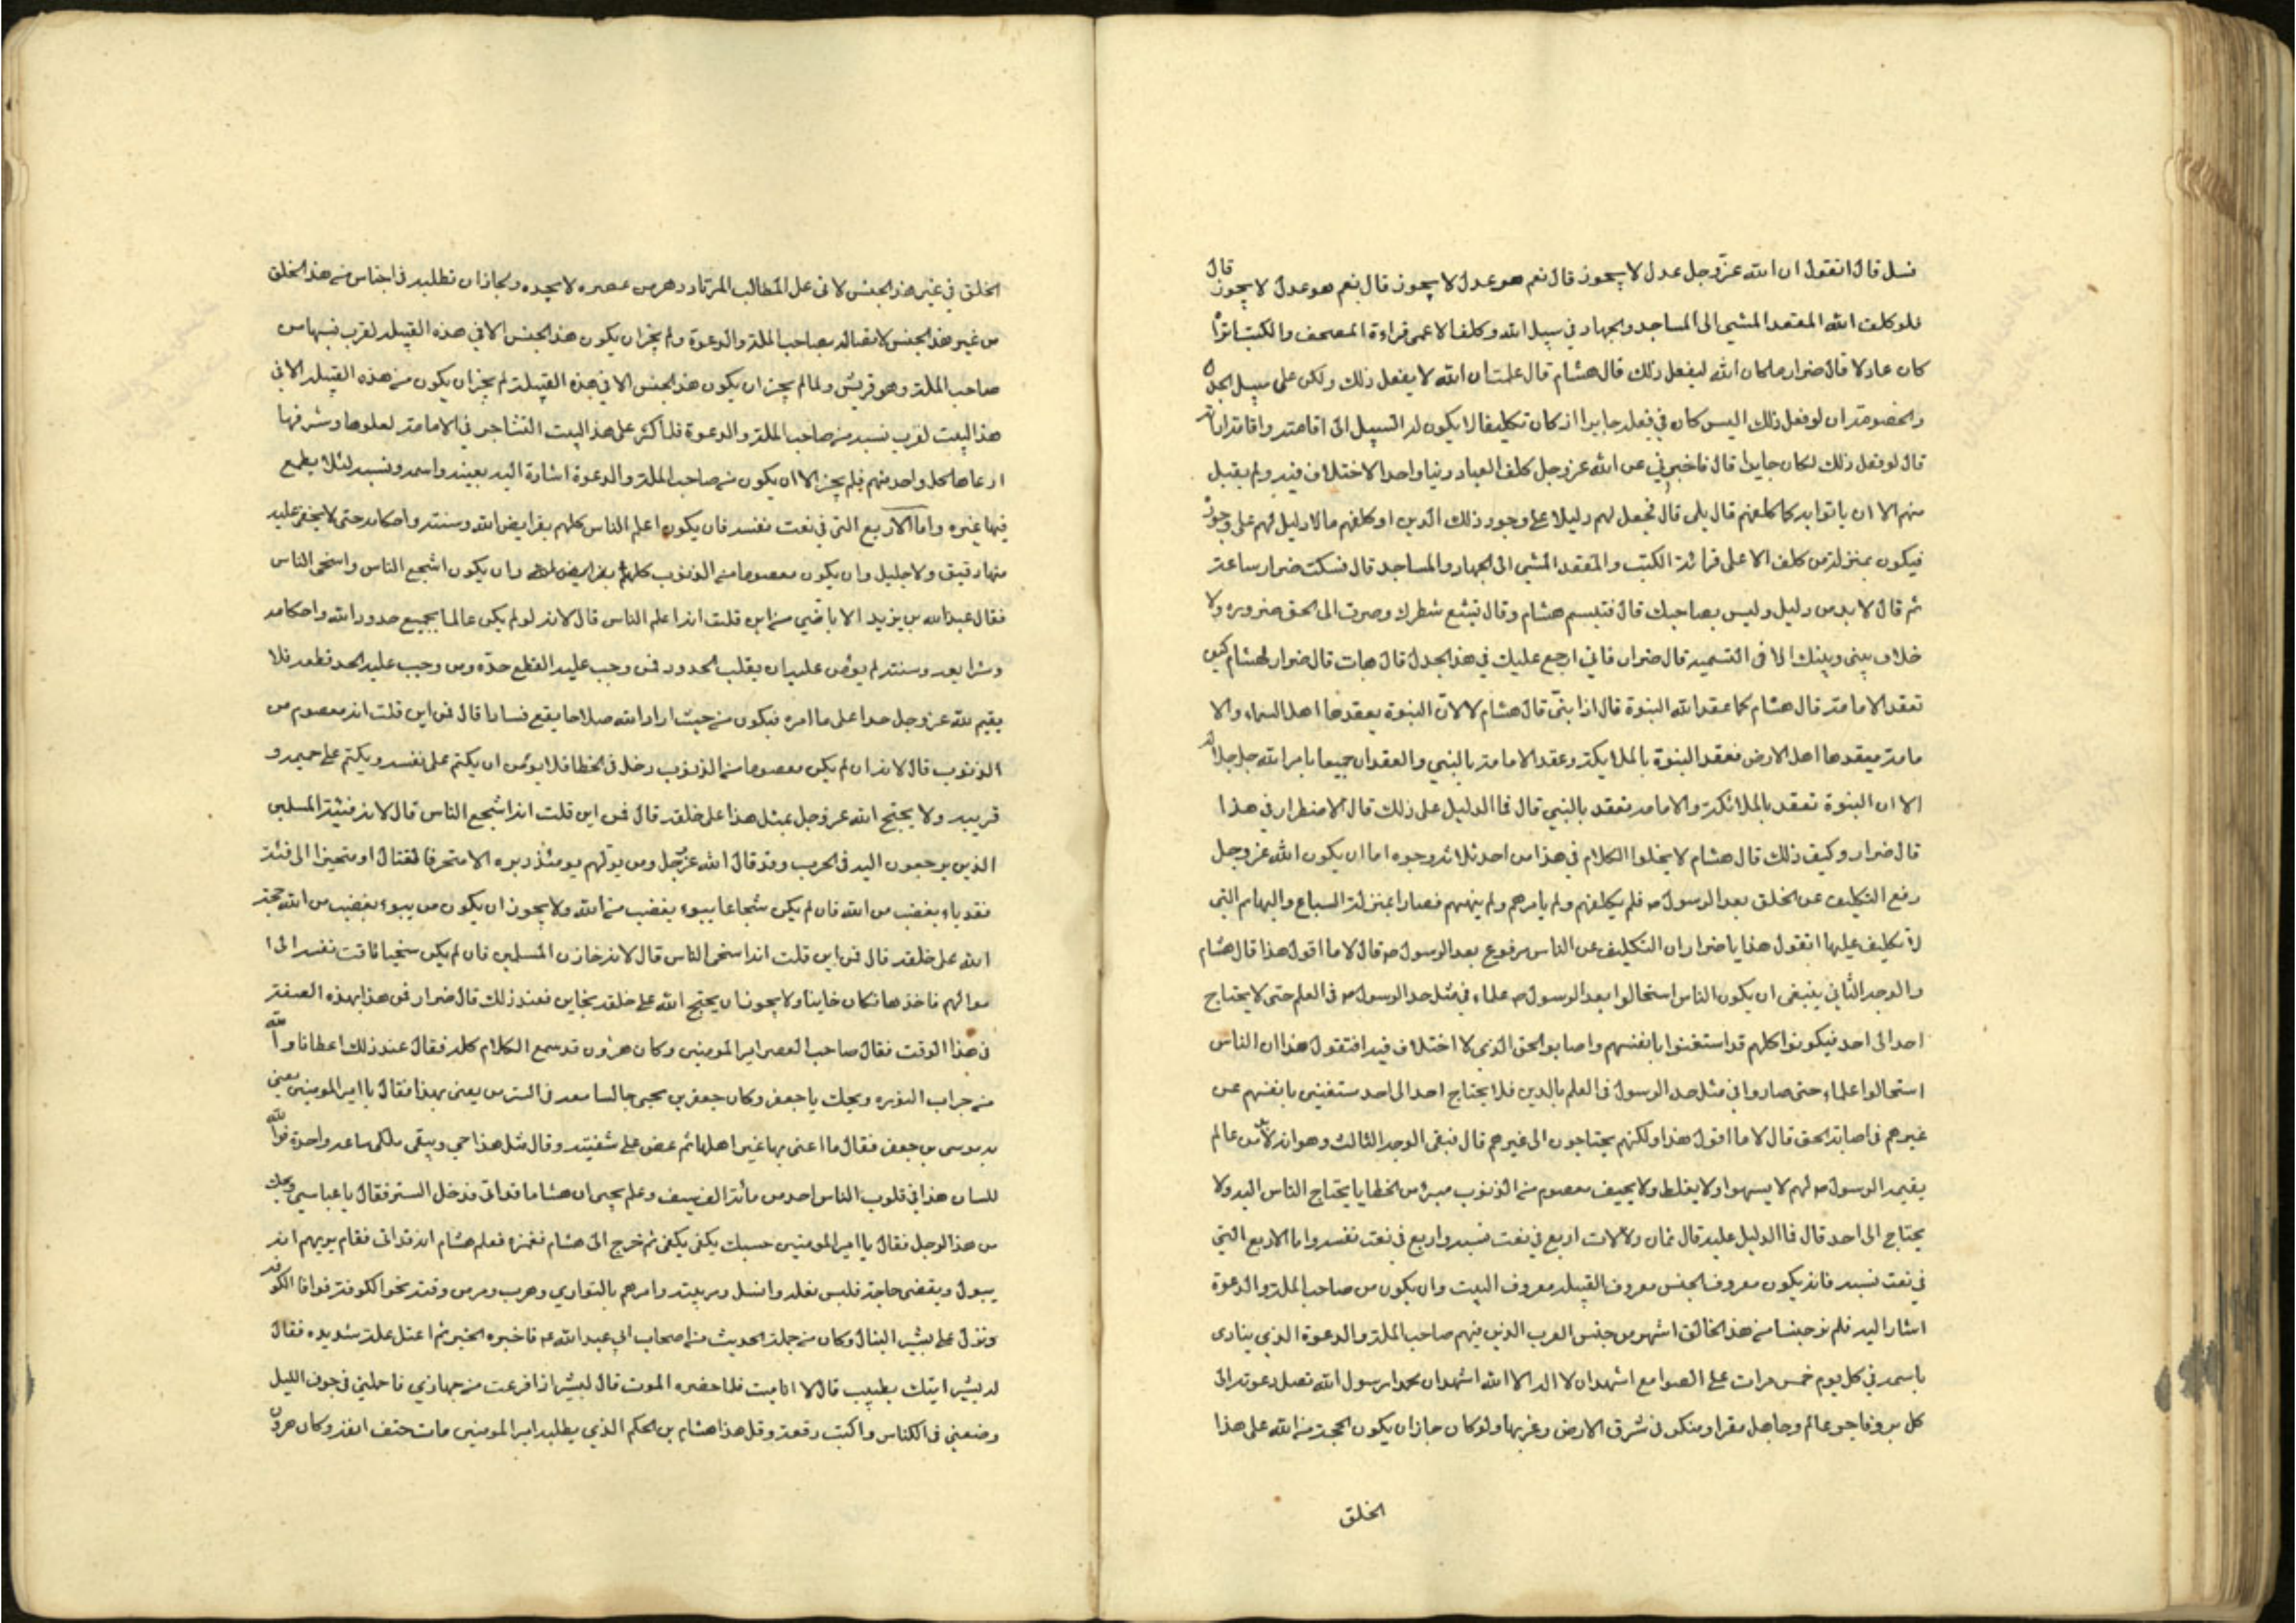 فسل قال اتقول ان الله عز وجل عدل لا يجوز قال نعم هو عدل لا يجوز قال نعم هو عدل لا يجوز قال
فلو كلف الله المقعد المشي الى المساجد والجهاد في سبيل الله وكلف الاعمى قراءة المصحف والكتب اتراه
كان عادلا قال ضرار ما كان الله ليفعل ذلك قال هشام قال علمت ان الله لا يفعل ذلك ولكن على سبيل الجدل
والخصومة ان لو فعل ذلك اليس كان في فعله جايرا اذ كان تكليفا لا يكون له السبيل الى اقامته واقامة اداته
قال لو فعل ذلك لكان جايرا قال فاخبرني عن الله عز وجل كلف العباد دينا واحدا لا اختلاف فيه ولم يقبل
منهم الا ان ياتوا به كما كلفهم قال بلى قال فجعل لهم دليلا على وجود ذلك الدين او كلفهم ما لا دليل لهم على وجوده
فيكون بمنزلة من كلف الاعلى قرائة الكتب والمقعد المشي الى الجهاد والمساجد قال فسكت ضرار ساعة
ثم قال لا بد من دليل وليس بصاحبك قال فتبسم هشام وقال تشيع شطرك وصرت الى الحق ضروره ولا
خلاف بيني وبينك الا في التسميه قال ضرار فاني ارجع عليك في هذا الجدل قال هات قال ضرار لهشام كيف
تعقد الامامة قال هشام كما عقد الله النبوة قال اذا نبي قال هشام لا لان النبوة يعقدها اهل السماء والا
مامة يعقدها اهل الارض فعقد النبوة بالملايكة وعقد الامامة بالنبي والعقدان جميعا بامر الله جل جلاله
الا ان النبوة تعقد بالملائكة والامامه تعقد بالنبي قال فما الدليل على ذلك قال الاضطرار في هذا
قال ضرار وكيف ذلك قال هشام لا يخلوا الكلام في هذا من احد ثلاثه وجوه اما ان يكون الله عز وجل
رفع التكليف عن الخلق بعد الرسول ص فلم يكلفهم ولم يامرهم ولم ينههم فصاروا بمنزلة السباع والبهايم التي
لا تكليف عليها اتقول هذا يا ضرار ان التكليف عن الناس مرفوع بعد الرسول ص قال لا ما اقول هذا قال هشام
والوجه الثاني ينبغي ان يكون الناس استحالوا بعد الرسول ص علماء في مثل حد الرسول ص في العلم حتى لا يحتاج
احد الى احد فيكونوا كلهم قد استغنوا بانفسهم واصابو الحق الذي لا اختلاف فيه افتقول هذا ان الناس
استحالوا علماء حتى صاروا في مثل حد الرسول في العلم بالدين فلا يحتاج احد الى احد مستغنين بانفسهم عن
غيرهم في اصابة الحق قال لا ما اقول هذا ولكنهم يحتاجون الى غيرهم قال فبقى الوجه الثالث وهو انه لا بد من عالم
يقيمه الرسول ص لهم لا يسهوا ولا يغلط ولا يحيف معصوم من الذنوب مبرء من الخطايا يحتاج الناس اليه ولا
يحتاج الى احد قال فما الدليل عليه قال ثمان دلالات اربع في نعت نسبه واربع في نعت نفسه واما الاربع التي
في نعت نسبه فانه يكون معروف الجنس معروف القبيله معروف البيت وان يكون من صاحب الملة والدعوة
اشارا اليه فلم نر جنسا من هذا الخالق اشهر من جنس العرب الذين فيهم صاحب الملة والدعوة الذي ينادى
باسمه في كل يوم خمس مرات على الصوامع اشهد ان لا اله الا الله اشهد ان محمدا رسول الله تصل دعوته الى
كل بر وفاجر وعالم وجاهل مقر او منكر في شرق الارض وغربها ولو كان جاز ان يكون الحجة من الله على هذا
الخلق
الخلق في غير هذا الجنس لاتى على الطالب المرتاد دهر من عصره لا يجده ولجاز ان تطلبه في اجناس من هذا الخلق
من غير هذا الجنس لاتصاله بصاحب الملة والدعوة ولم يجز ان يكون هذا الجنس الا في هذه القبيله لقرب نسبها من
صاحب الملة وهو قريش ولما لم يجز ان يكون هذا الجنس الا في هذه القبيلة لم يجز ان يكون من هذه القبيله الا في
هذا البيت لقرب نسبه من صاحب الملة والدعوة فلما كثر على هذا البيت التشاجر في الامامة لعلوها وشرفها
ادعاها كل واحد منهم فلم يجز الا ان يكون من صاحب الملة والدعوة اشارة اليه بعينه واسمه ونسبه لئلا يطمع
فيها غيره واما الاربع التي في نعت نفسه فان يكون اعلم الناس كلهم بفرايض الله وسنته واحكامه حتى لا يخفى عليه
منها دقيق ولا جليل وان يكون معصوما من الذنوب كلهم وان يكون اشجع الناس واسخى الناس
فقال عبد الله بن يزيد الاباضي من اين قلت انه اعلم الناس قال لانه لو لم يكن عالما بجميع حدود الله واحكامه
وشرايعه وسنته لم يؤمن عليه ان يقلب الحدود فمن وجب عليه القطع حده ومن وجب عليه الحد قطعه فلا
يقيم لله عز وجل حدا على ما امره فيكون من حيث اراد الله صلاحا يقع فسادا قال فمن اين قلت انه معصوم من
الذنوب قال لانه ان لم يكن معصوما من الذنوب دخل في الخطا فلا يومن ان يكتم على نفسه ويكتم على حميمه و
قريبه ولا يحتج الله عز وجل بمثل هذا على خلقه قال فمن اين قلت انه اشجع الناس قال لانه فيئة المسلمين
الذين يرجعون اليه في الحرب وقد قال الله عز وجل ومن يولهم يومئذ دبره الا متحرفا لقتال او متحيزا الى فئة
فقد باء بغضب من الله فان لم يكن شجاعا يبوء بغضب من الله ولا يجوز ان يكون من يبوء بغضب من الله حجة
الله على خلقه قال فمن اين قلت انه اسخى الناس قال لانه خازن المسلمين فان لم يكن سخيا تاقت نفسه الى ا
موالهم فاخذها فكان خاينا ولا يجوز ان يحتج الله على خلقه بخاين فعند ذلك قال ضرار فمن هذا بهذه الصفة
في هذا الوقت فقال صاحب العصر امير المومنين وكان هرون قد سمع الكلام كله فقال عند ذلك اعطانا والله
من جراب النوره ويحك يا جعفر وكان جعفر بن يحيى جالسا معه في الستر من يعني بهذا فقال يا امير المومنين يعني
به موسى بن جعفر فقال ما اعنى بها غير اهلها ثم عض على شفتيه وقال مثل هذا حي ويبقى ملكي ساعة واحدة فوالله
للسان هذا في قلوب الناس احد من مائة الف سيف وعلم يحيى ان هشاما قد اتى فدخل الستر فقال يا عباسي ويحك
من هذا الرجل فقال يا امير المومنين حسبك يكفى يكفى ثم خرج الى هشام فغمزه فعلم هشام انه قد اتى فقام يريهم انه
يبول ويقضى حاجة فلبس نعله وانسل ومر ببيته وامرهم بالتواري وهرب ومر من وقته نحو الكوفة فوافا الكوفه
ونزل على بشير النبال وكان من حملة الحديث من اصحاب ابي عبد الله ع فاخبره الخبر ثم اعتل علة شديده فقال
له بشير ايتك بطبيب قال لا انا ميت فلما حضره الموت قال لبشير اذا فرغت من جهازي فاحملني في جوف الليل
وضعني في الكناس واكتب رقعة وقل هذا هشام بن الحكم الذي يطلبه امير المومنين مات حتف انفه وكان هرون